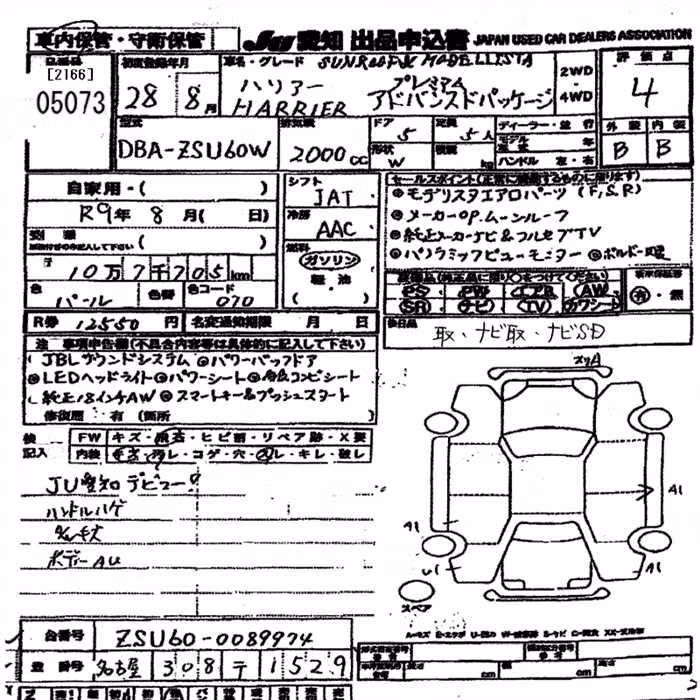 車内保管・守衛保管
JU 愛知 出品申込書 JAPAN USED CAR DEALERS ASSOCIATION
[2166]
05073
初度登録年月
28 8月
車名・グレード SUNROOF& MODELLISTA
ハリアー プレミアム
HARRIER アドバンスドパッケージ
2WD
4WD
評価点
4
外装 内装
B B
型式
DBA-ZSU60W
排気量
2000cc
ドア 5
形状 W
定員 5人
積載 kg
ディーラー・並行
モデル年式 年
ハンドル 左・右
自家用・(
R9年 8月( 日)
10万7千705km
色 パール 色替 色コード 070
R券 12550円 名変通知期限 月 日
シフト
IAT
冷房
AAC
燃料
ガソリン
軽・油
セールスポイント(正常に機能するものに限ります)
◎モデリスタエアロパーツ (F,S,R)
◎メーカーOP.ムーンルーフ
◎純正メーカーナビ&フルセグTV
◎パノラミックビューモニター
PS・PW・エアB・AW
SR・ナビ・TV・カワシート
有・無
後日品
取、ナビ取、ナビSD
注 事項申告欄(不具合内容等は具体的に記入して下さい)
JBLサウンドシステム ◎パワーバックドア
◎LEDヘッドライト◎パワーシート
純正18インチAW ◎スマートキー&プッシュスタート
修復歴 有 (箇所
検 FW キズ・飛石・ヒビ割・リペア跡・X要
記入 内装 キズ・汚レ・コゲ・穴・スレ・キレ・破レ
JU愛知デビュー!
ハンドルハゲ
ボディーAU
スリA
A1
A1
U1
A1
スペア
台番号 ZSU60-0089974
登 番号 名古屋 308 テ 1529
cm cm cm